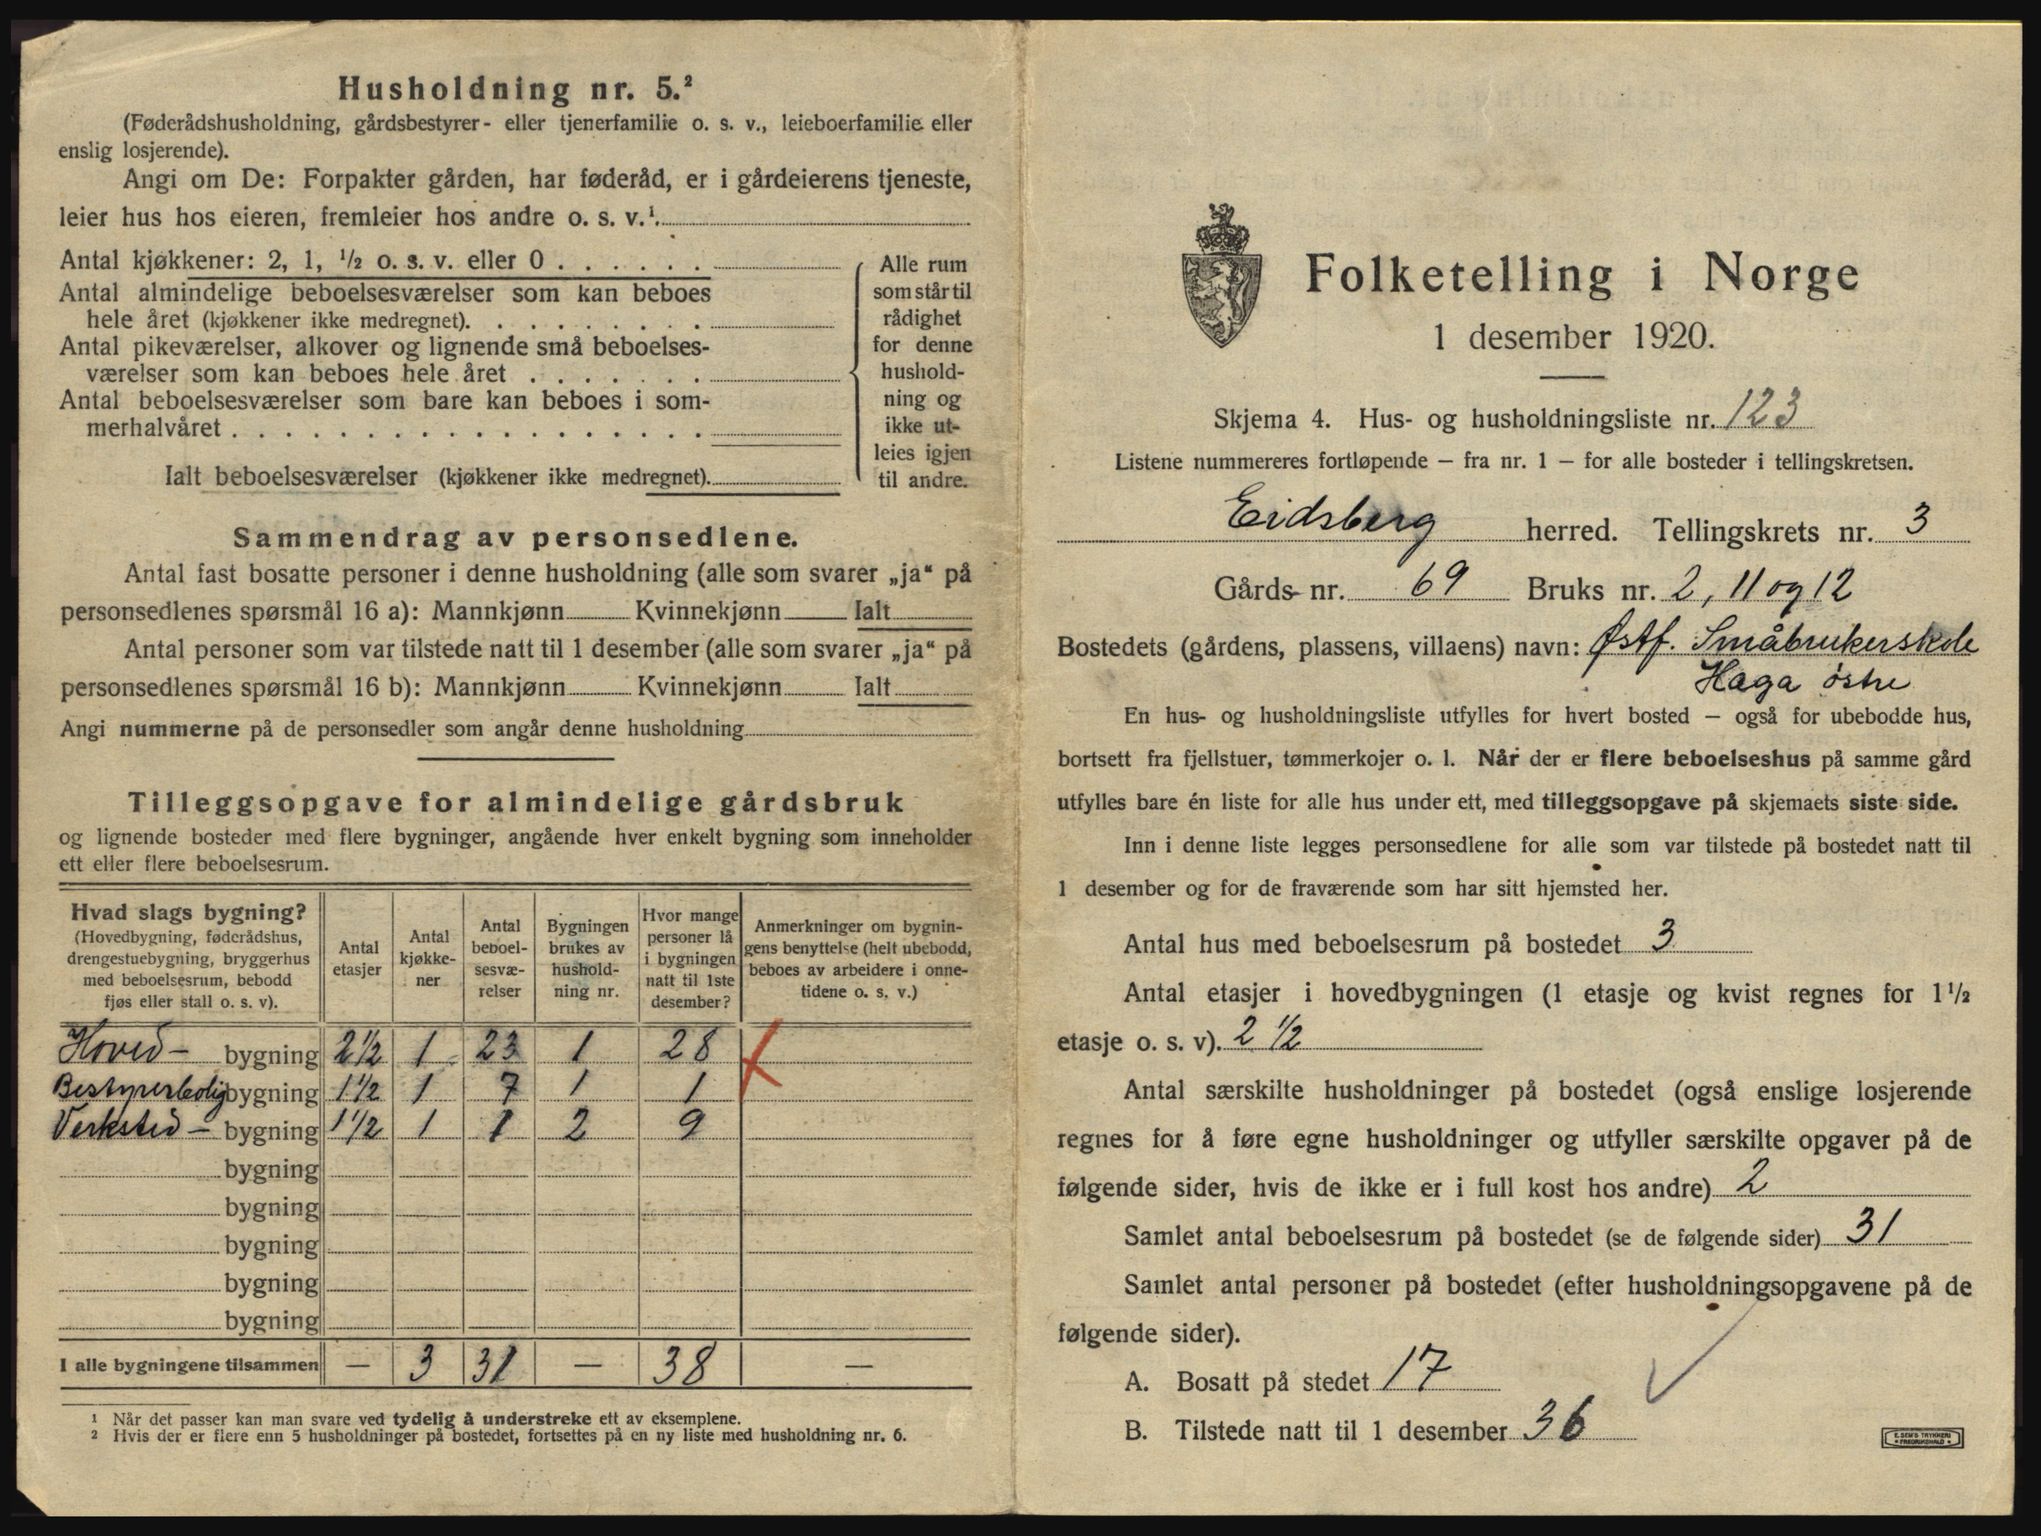 Husholdning nr. 5.²
(Føderådshusholdning, gårdsbestyrer- eller tjenerfamilie o. s. v., leieboerfamilie eller
enslig losjerende).
Angi om De: Forpakter gården, har føderåd, er i gårdeierens tjeneste,
leier hus hos eieren, fremleier hos andre o. s. v.¹.
Antal kjøkkener: 2, 1, ½ o. s. v. eller 0 . . . . . .
Antal almindelige beboelsesværelser som kan beboes
hele året (kjøkkener ikke medregnet). . . . . . . . .
Antal pikeværelser, alkover og lignende små beboelses-
værelser som kan beboes hele året . . . . . . .
Antal beboelsesværelser som bare kan beboes i som-
merhalvåret . . . . . . . . . . . . . . . . . .
Ialt beboelsesværelser (kjøkkener ikke medregnet).
Alle rum
som står til
rådighet
for denne
hushold-
ning og
ikke ut-
leies igjen
til andre.
Sammendrag av personsedlene.
Antal fast bosatte personer i denne husholdning (alle som svarer „ja“ på
personsedlenes spørsmål 16 a): Mannkjønn Kvinnekjønn Ialt
Antal personer som var tilstede natt til 1 desember (alle som svarer „ja“ på
personsedlenes spørsmål 16 b): Mannkjønn Kvinnekjønn Ialt
Angi nummerne på de personsedler som angår denne husholdning
Tilleggsopgave for almindelige gårdsbruk
og lignende bosteder med flere bygninger, angående hver enkelt bygning som inneholder
ett eller flere beboelsesrum.
Hvad slags bygning?
(Hovedbygning, føderådshus,
drengestuebygning, bryggerhus
med beboelsesrum, bebodd
fjøs eller stall o. s. v).
Antal
etasjer
Antal
kjøkke-
ner
Antal
beboel-
sesvæ-
relser
Bygningen
brukes av
hushold-
ning nr.
Hvor mange
personer lå
i bygningen
natt til 1ste
desember?
Anmerkninger om bygnin-
gens benyttelse (helt ubebodd,
beboes av arbeidere i onne-
tidene o. s. v.)
Hoved- bygning 2½ 1 23 1 28
Bestyrerbolig bygning 1½ 1 7 1 1
Verksted- bygning 1½ 1 1 2 9
bygning
bygning
bygning
bygning
bygning
I alle bygningene tilsammen — 3 31 — 38 —
¹ Når det passer kan man svare ved tydelig å understreke ett av eksemplene.
² Hvis der er flere enn 5 husholdninger på bostedet, fortsettes på en ny liste med husholdning nr. 6.
Folketelling i Norge
1 desember 1920.
Skjema 4. Hus- og husholdningsliste nr. 123
Listene nummereres fortløpende — fra nr. 1 — for alle bosteder i tellingskretsen.
Eidsberg herred. Tellingskrets nr. 3
Gårds- nr. 69 Bruks nr. 2, 11 og 12
Bostedets (gårdens, plassens, villaens) navn: Østf. Småbrukerskole
Haga østre
En hus- og husholdningsliste utfylles for hvert bosted — også for ubebodde hus,
bortsett fra fjellstuer, tømmerkojer o. l. Når der er flere beboelseshus på samme gård
utfylles bare én liste for alle hus under ett, med tilleggsopgave på skjemaets siste side.
Inn i denne liste legges personsedlene for alle som var tilstede på bostedet natt til
1 desember og for de fraværende som har sitt hjemsted her.
Antal hus med beboelsesrum på bostedet 3
Antal etasjer i hovedbygningen (1 etasje og kvist regnes for 1½
etasje o. s. v). 2 ½
Antal særskilte husholdninger på bostedet (også enslige losjerende
regnes for å føre egne husholdninger og utfyller særskilte opgaver på de
følgende sider, hvis de ikke er i full kost hos andre) 2
Samlet antal beboelsesrum på bostedet (se de følgende sider) 31
Samlet antal personer på bostedet (efter husholdningsopgavene på de
følgende sider).
A. Bosatt på stedet 17
B. Tilstede natt til 1 desember 36
E. SEM'S TRYKKERI
FREDRIKSHALD